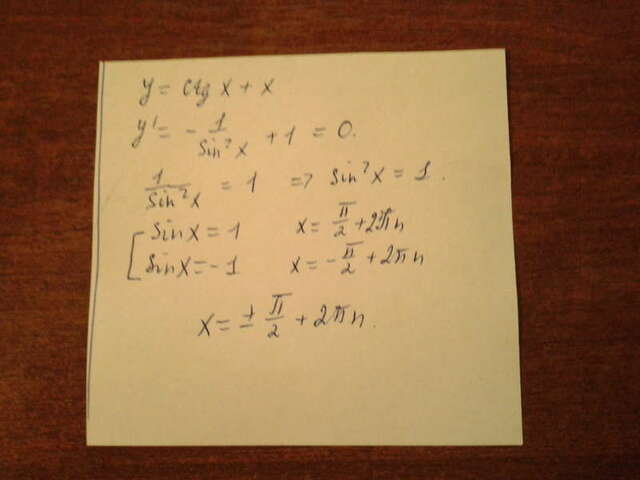 y = ctg x + x
y' = - 1/sin²x + 1 = 0.
1/sin²x = 1 => sin²x = 1.
[ sin x = 1 x = π/2 + 2πn
sin x = -1 x = -π/2 + 2πn
x = ± π/2 + 2πn.